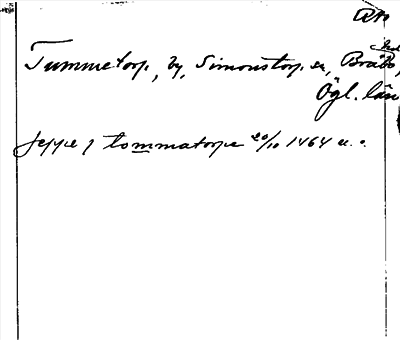 Tummetorp, by, Simonstorp sn, Bråbo
hd
Ögl. län
jeppe j tommatorpe 20/10 1464 u. o.